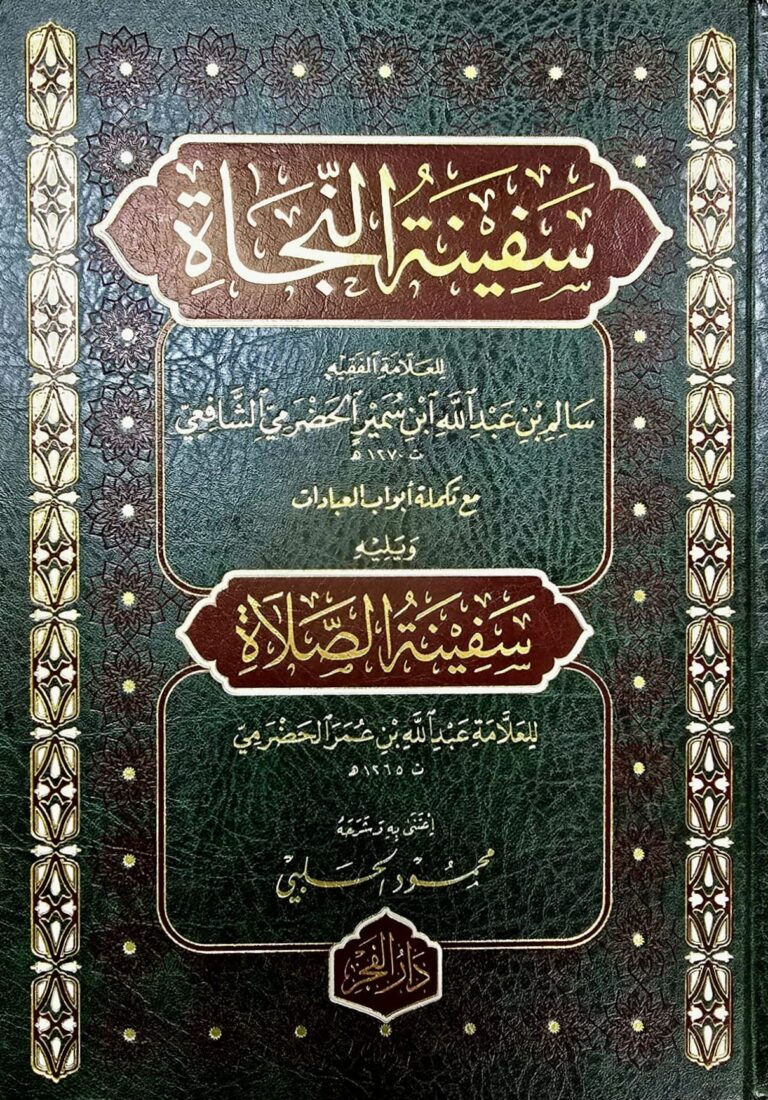 سَفِينَةُ النَّجَاةِ
لِلعَلَّامَةِ الفَقِيْهِ
سَالِمِ بْنِ عَبْدِ اللَّهِ ابْنِ سُمَيْرٍ الحَضْرَمِيِّ الشَّافِعِيِّ
ت ١٢٧٠ هـ
مع تكملة أبواب العبادات
وَيَلِيْهِ
سَفِيْنَةُ الصَّلَاةِ
لِلعَلَّامَةِ عَبْدِ اللَّهِ بْنِ عُمَرَ الحَضْرَمِيِّ
ت ١٢٦٥ هـ
اِعْتَنَى بِهِ وَشَرَحَهُ
محمُود الحَلَبِيّ
دَارُ الفَجْرِ